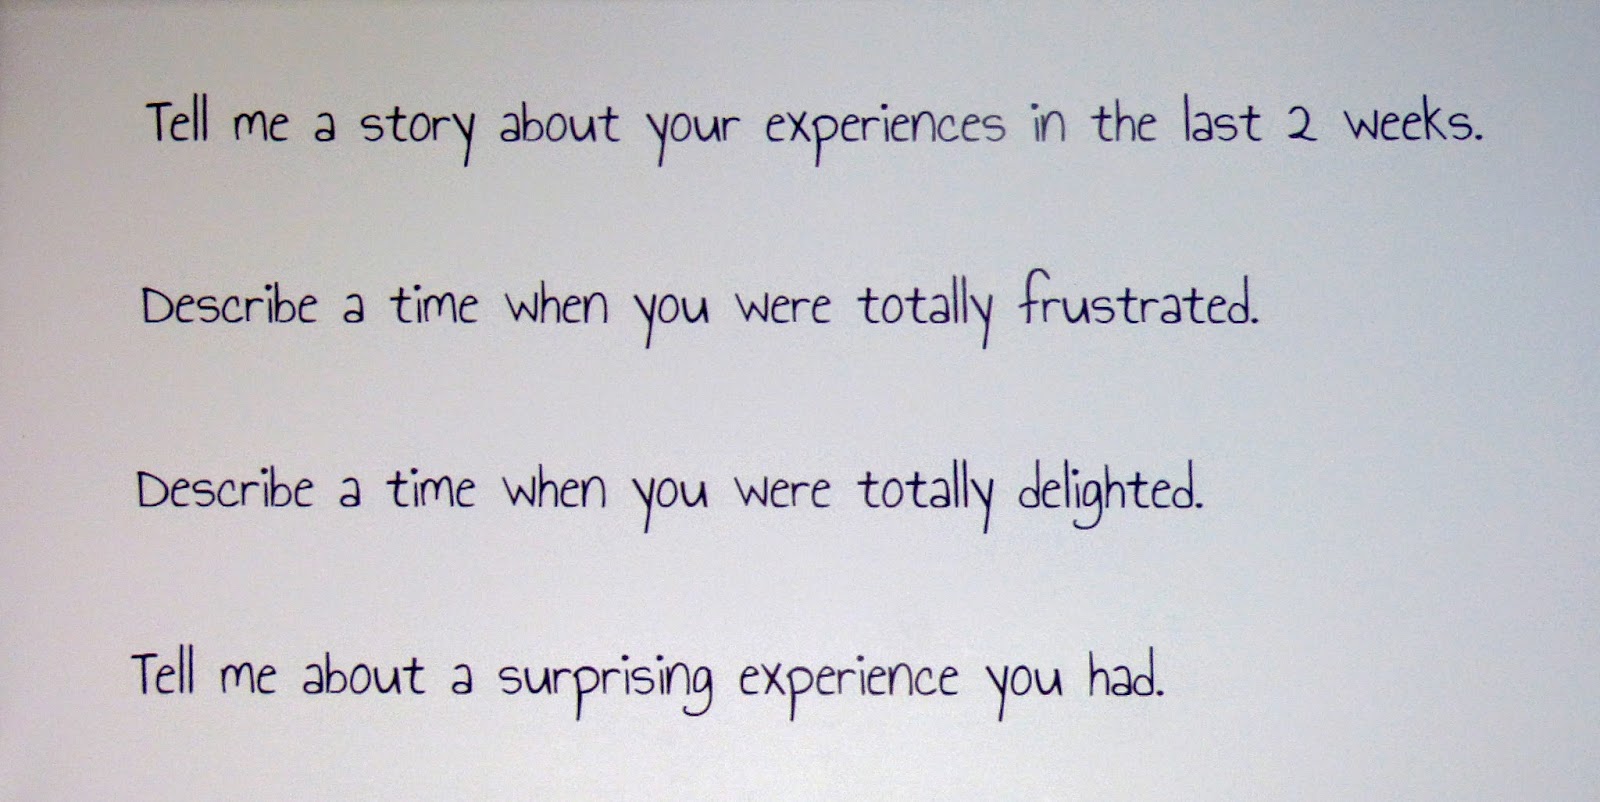 Tell me a story about your experiences in the last 2 weeks.
Describe a time when you were totally frustrated.
Describe a time when you were totally delighted.
Tell me about a surprising experience you had.